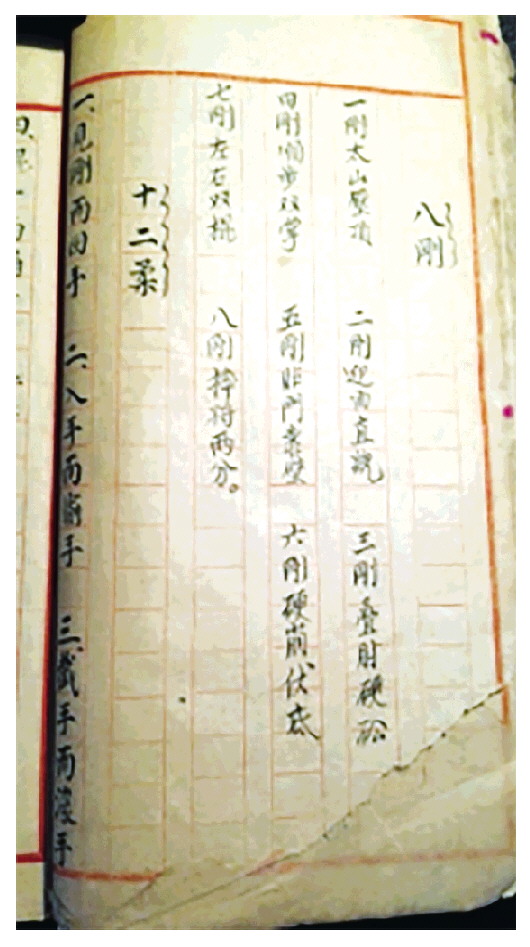 八剛
一剛太山壓頂 二剛迎面直統 三剛叠肘硬
四剛順步双掌 五剛貼門靠壁 六剛硬崩伏底
七剛左右双 八剛 兩分。
十二柔
一、見剛而回手 二、入手而 手 三、截手而 手